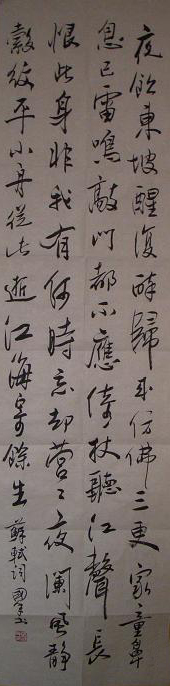 夜飲東坡醒復醉歸來仿佛三更家童鼻
息已雷鳴敲門都不應倚杖聽江聲長
恨此身非我有何時忘却營〻夜闌風靜
縠紋平小舟從此逝江海寄餘生 蘇軾詞